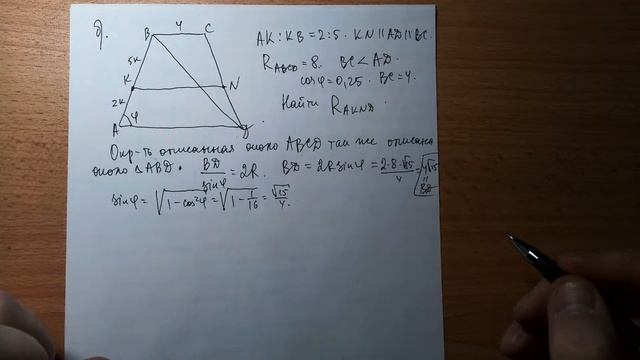 б).
B 4 C
5K
K N
2K
A φ D
AK : KB = 2 : 5. KN || AD || BC.
R_ABCD = 8. BC < AD.
cosφ = 0,25. BC = 4.
Найти R_AKND.
Окр-ть описанная около ABCD так же описана
около △ABD. BD/sinφ = 2R. BD = 2R sinφ = 2·8·√15/4 = 4√15 = BD
sinφ = √(1 - cos²φ) = √(1 - 1/16) = √15/4.